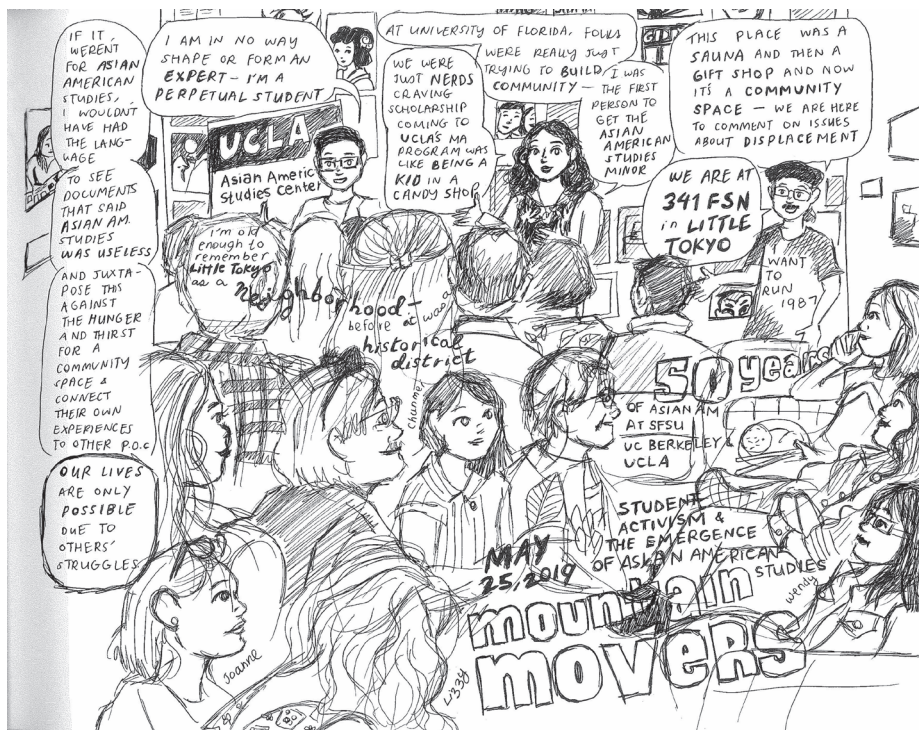 IF IT
WEREN'T
FOR ASIAN
AMERICAN
STUDIES,
I WOULDN'T
HAVE HAD
THE LANG-
UAGE
TO SEE
DOCUMENTS
THAT SAID
ASIAN AM.
STUDIES
WAS USELESS
AND JUXTA-
POSE THIS
AGAINST
THE HUNGER
AND THIRST
FOR A
COMMUNITY
SPACE &
CONNECT
THEIR OWN
EXPERIENCES
TO OTHER P.O.C.
OUR LIVES
ARE ONLY
POSSIBLE
DUE TO
OTHERS'
STRUGGLES
I AM IN NO WAY
SHAPE OR FORM AN
EXPERT – I'M A
PERPETUAL STUDENT
UCLA
Asian Americ
Studies Center
AT UNIVERSITY OF FLORIDA, FOLKS
WERE REALLY JUST
TRYING TO BUILD
COMMUNITY –
I WAS
THE FIRST
PERSON TO
GET THE
ASIAN
AMERICAN
STUDIES
MINOR
WE WERE
JUST NERDS
CRAVING
SCHOLARSHIP
COMING TO
UCLA'S MA
PROGRAM WAS
LIKE BEING A
KID IN A
CANDY SHOP
THIS PLACE WAS A
SAUNA AND THEN A
GIFT SHOP AND NOW
IT'S A COMMUNITY
SPACE – WE ARE HERE
TO COMMENT ON ISSUES
ABOUT DISPLACEMENT
WE ARE AT
341 FSN
in LITTLE
TOKYO
I WANT
TO
RUN
1987
I'm old
enough to
remember
Little Tokyo
as a
Neighborhood –
before it was a
historical
district
50 years
OF ASIAN AM
AT SFSU
UC BERKELEY &
UCLA
STUDENT
ACTIVISM &
THE EMERGENCE
OF ASIAN AMERICAN
STUDIES
MAY
25, 2019
mountain
movers
Joanne
Lizzy
wendy